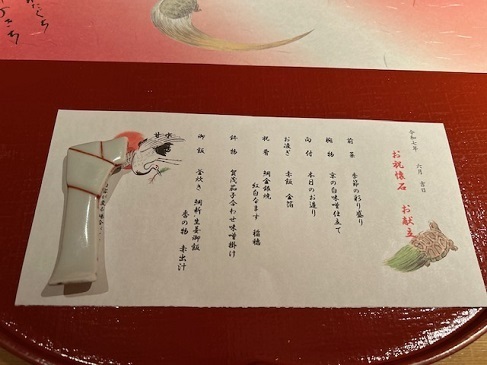 令和七年 六月 吉日
お祝懐石 お献立
前菜 季節の彩り盛り
椀物 京の白味噌仕立て
向付 本日のお造り
お凌ぎ 赤飯 金箔
祝肴 鯛金銀焼
紅白なます 稲穂
鉢物 賀茂茄子合わせ味噌掛け
御飯 釜炊き 鯛新生姜御飯
香の物 赤出汁
甘味